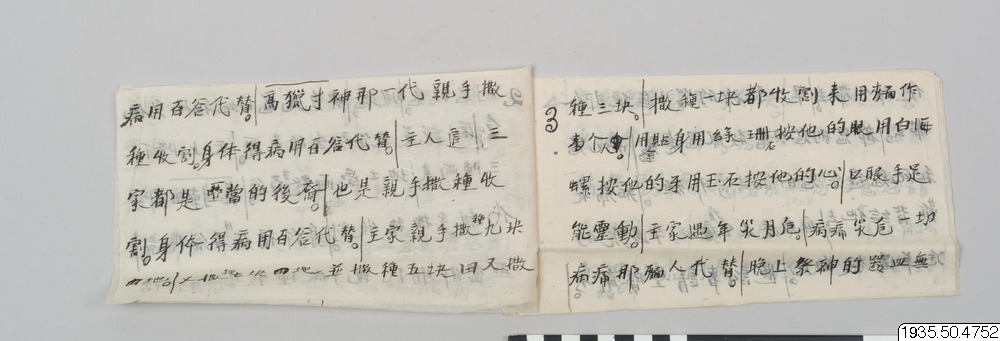 病用百谷代替。高獵寸神那一代親手撒
種收割。身体得病用百谷代替。主人這三
家都是 的後裔。也是親手撒種收
割。身体得病用百谷代替。主家親手撒種九块
並撒種五块田又撒
3
種三块。撒種一块都收割来用麵作
個人。用貼金身用綠珊石按他的眼用白海
螺按他的牙用玉石按他的心。口眼手足
能靈動。主家遇年災月危。病痛災危一切
病痛那麵人代替。晚上祭神的 無
1935.50.4752